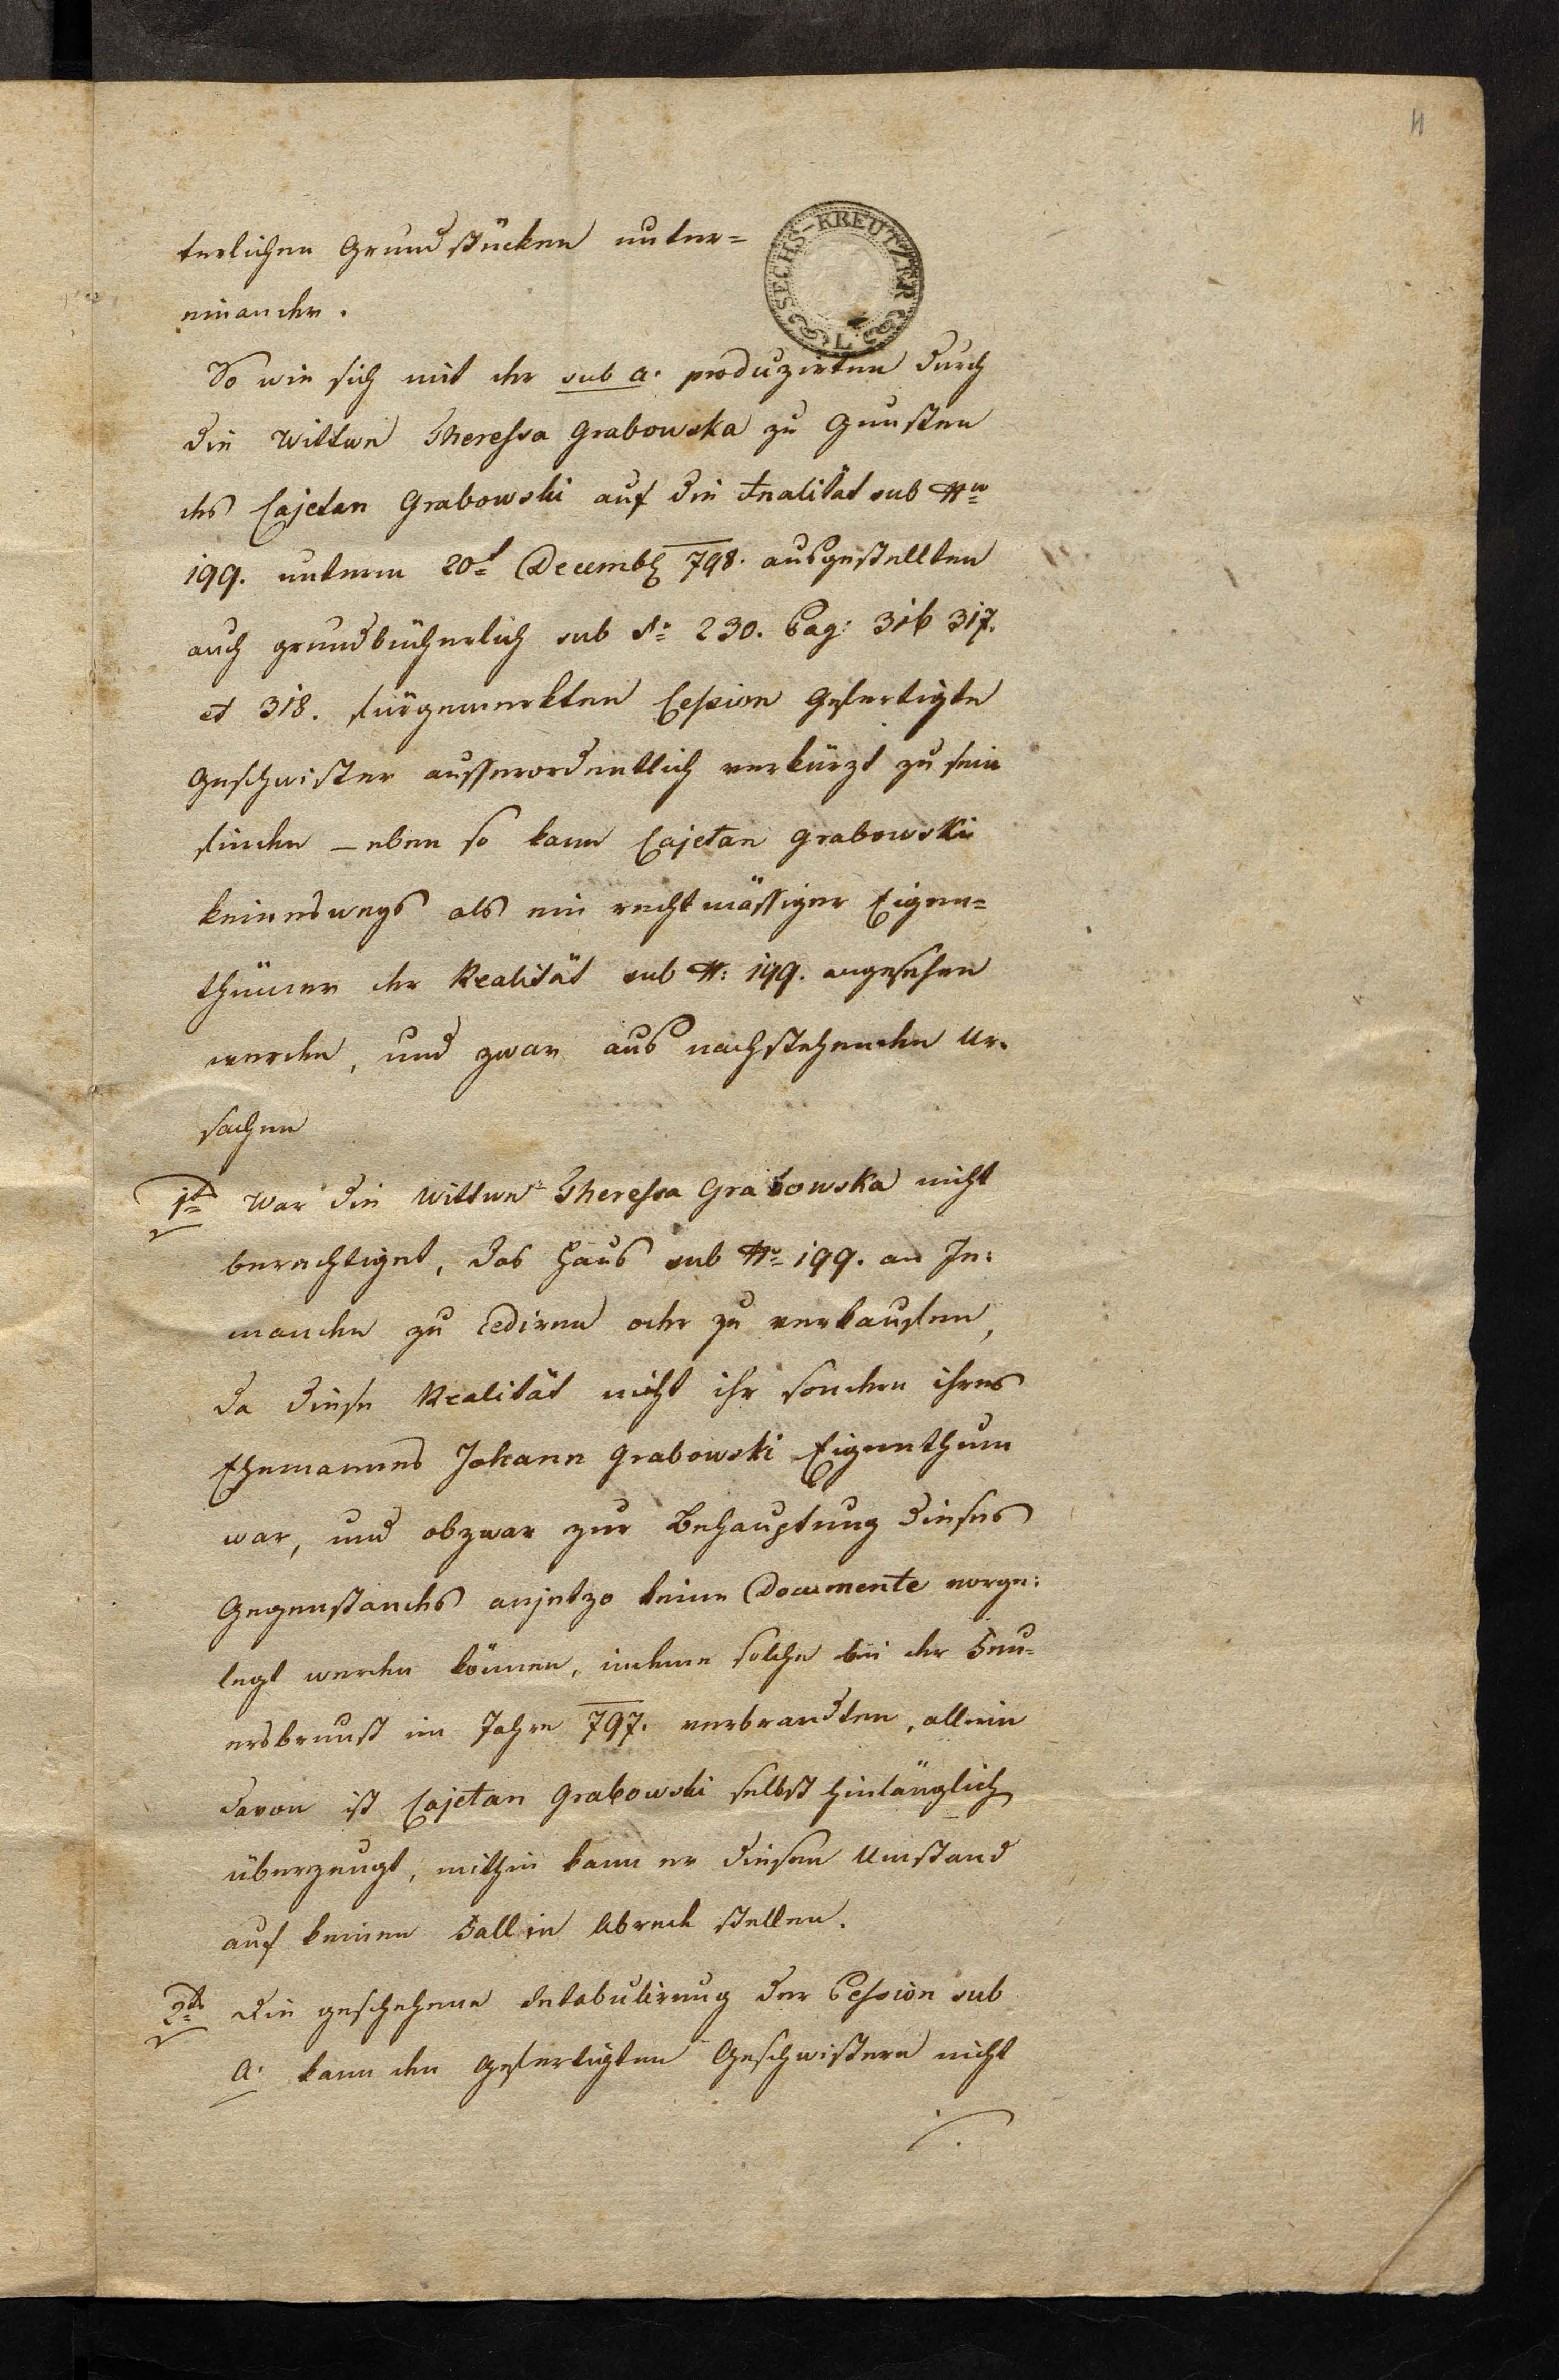 11
SECHS-KREUTZER
L
terlichen Grundstücken unter=
einander.
So wie sich mit der sub a. produzirten durch
die Wittwe Theressa Grabowska zu Gunsten
des Cajetan Grabowski auf die Realität sub Nro
199. unterm 20t Decemb 798. ausgestellten
auch grundbücherlich sub No 230. Pag: 316 317.
et 318. fürgemerkten Cession Gefertigte
Geschwister ausserordentlich verkürzt zu sein
finden – eben so kann Cajetan Grabowski
keineswegs als ein rechtmässiger Eigen=
thümer der Realität sub N: 199. angesehen
werden, und zwar aus nachstehenden Ur=
sachen
1tns War die Wittwe Theressa Grabowska nicht
berechtiget, das Haus sub Nro 199. an Je=
manden zu cediren oder zu verkaufen,
da diese Realität nicht ihr sondern ihres
Ehemannes Johann Grabowski Eigenthum
war, und obzwar zur Behauptung dieses
Gegenstandes anjetzo keine Documente vorge=
legt werden können, indeme solche bei der Feu=
ersbrunst im Jahre 797. verbrandten, allein
davon ist Cajetan Grabowski selbst hinlänglich
überzeugt, mithin kann er diesen Umstand
auf keinen Fall in Abrede stellen.
2tns Die geschehene Intabulirung der Cession sub
A. kann den Gefertigten Geschwistern nicht
./.